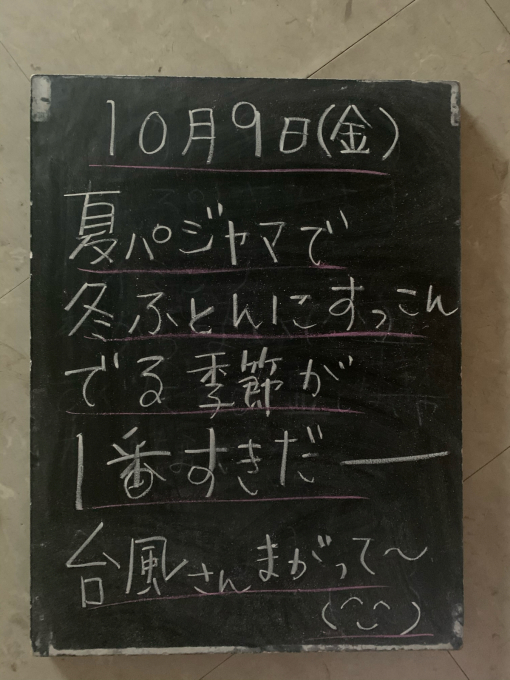 10月9日(金)
夏パジャマで
冬ふとんにすっこん
でる季節が
1番すきだー
台風さんまがって〜
(^-^)